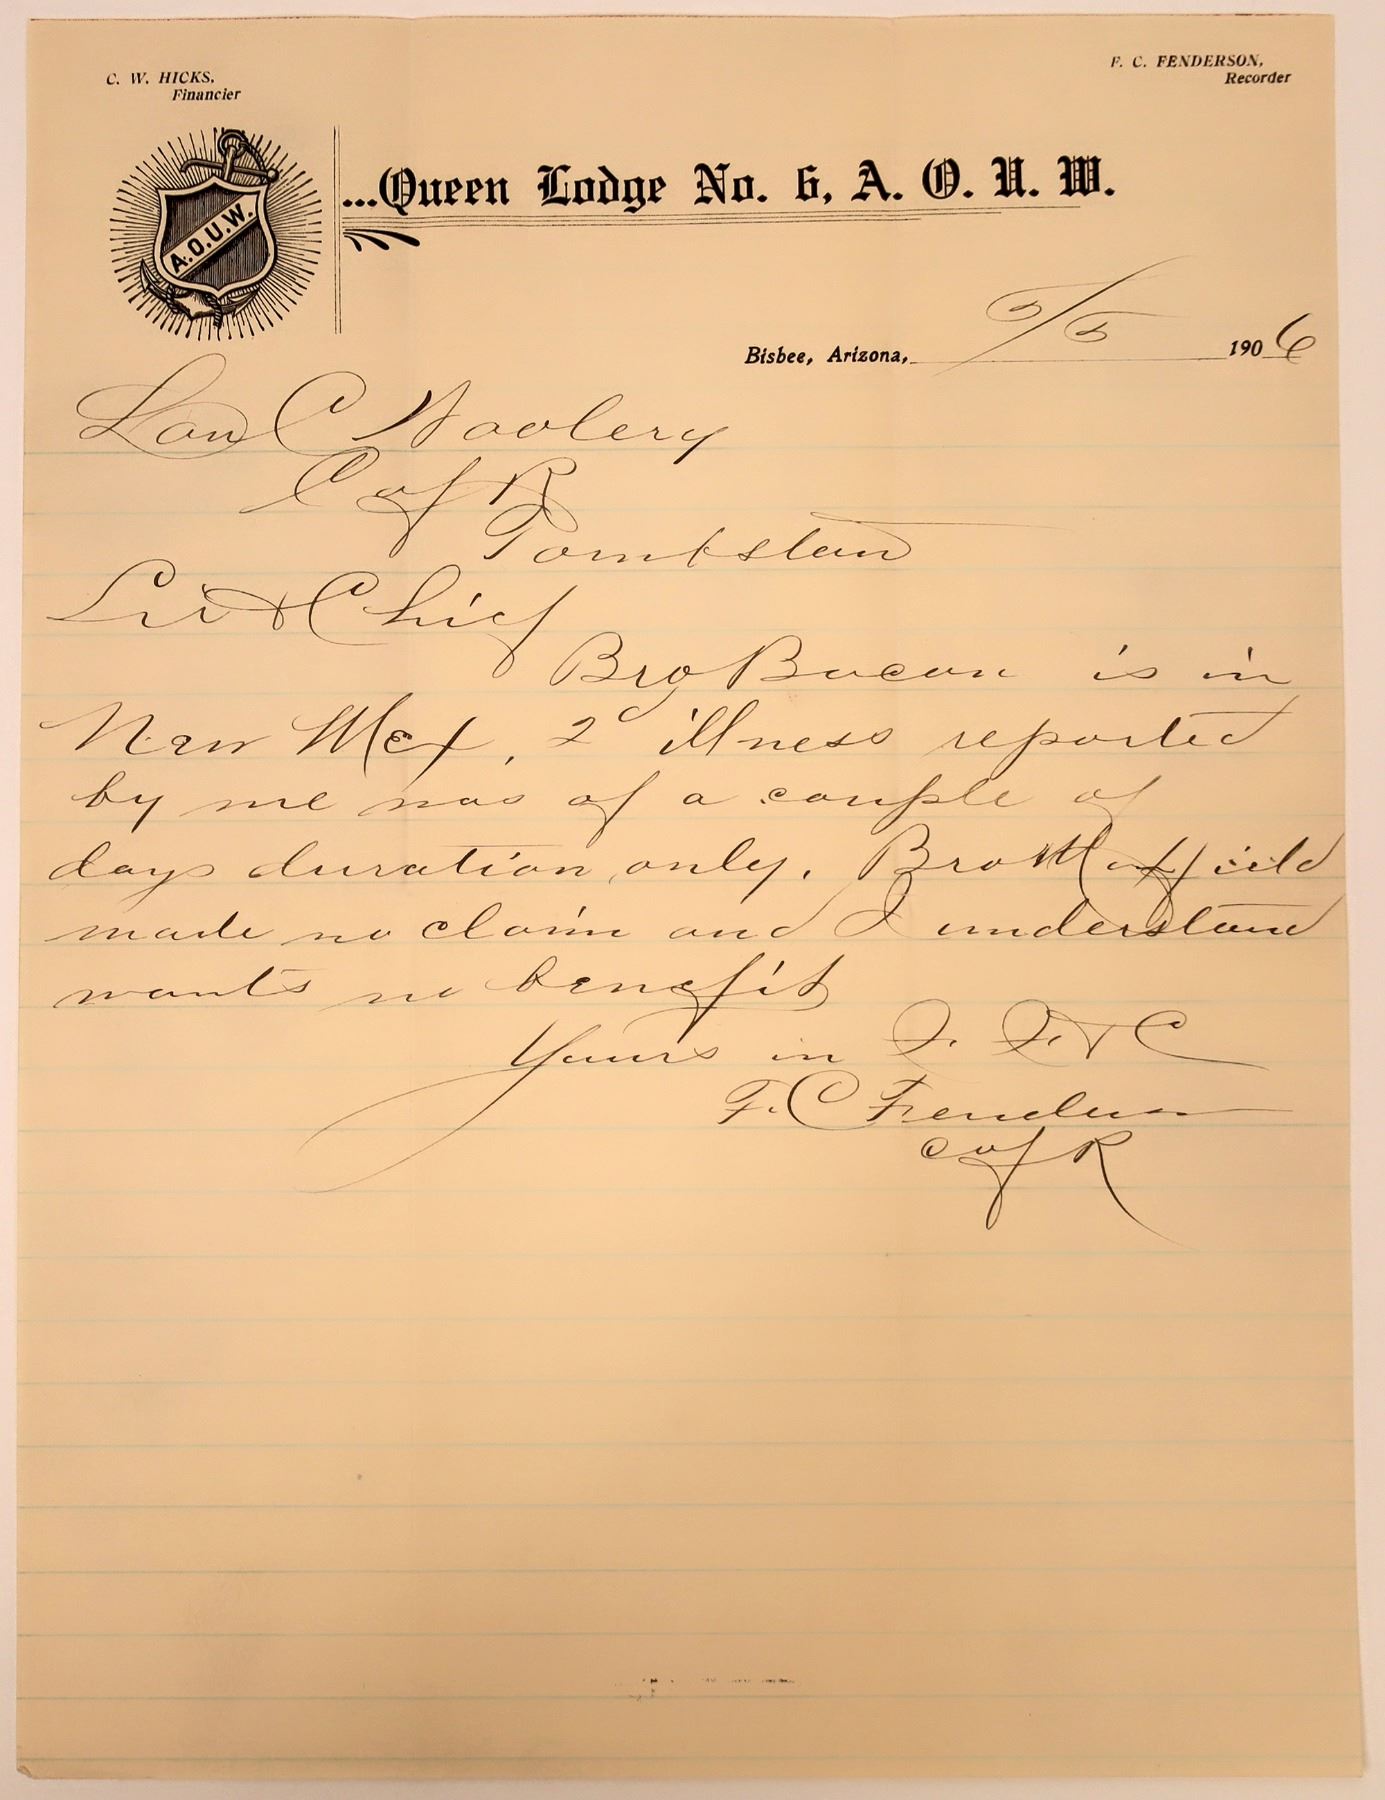 C. W. HICKS,
Financier
F. C. FENDERSON,
Recorder
A.O.U.W.
...Queen Lodge No. 6, A. O. U. W.
Bisbee, Arizona, 5/5 1906
Lon C Woolery
C of R
Tombston
Sir & Chief
Bro Bacon is in
New Mex, 2d illness reported
by me was of a couple of
days duration, only. Bro
made no claim and I understand
wants no benefit
Yours in F. F. & C
F. C Fenderson
C of R